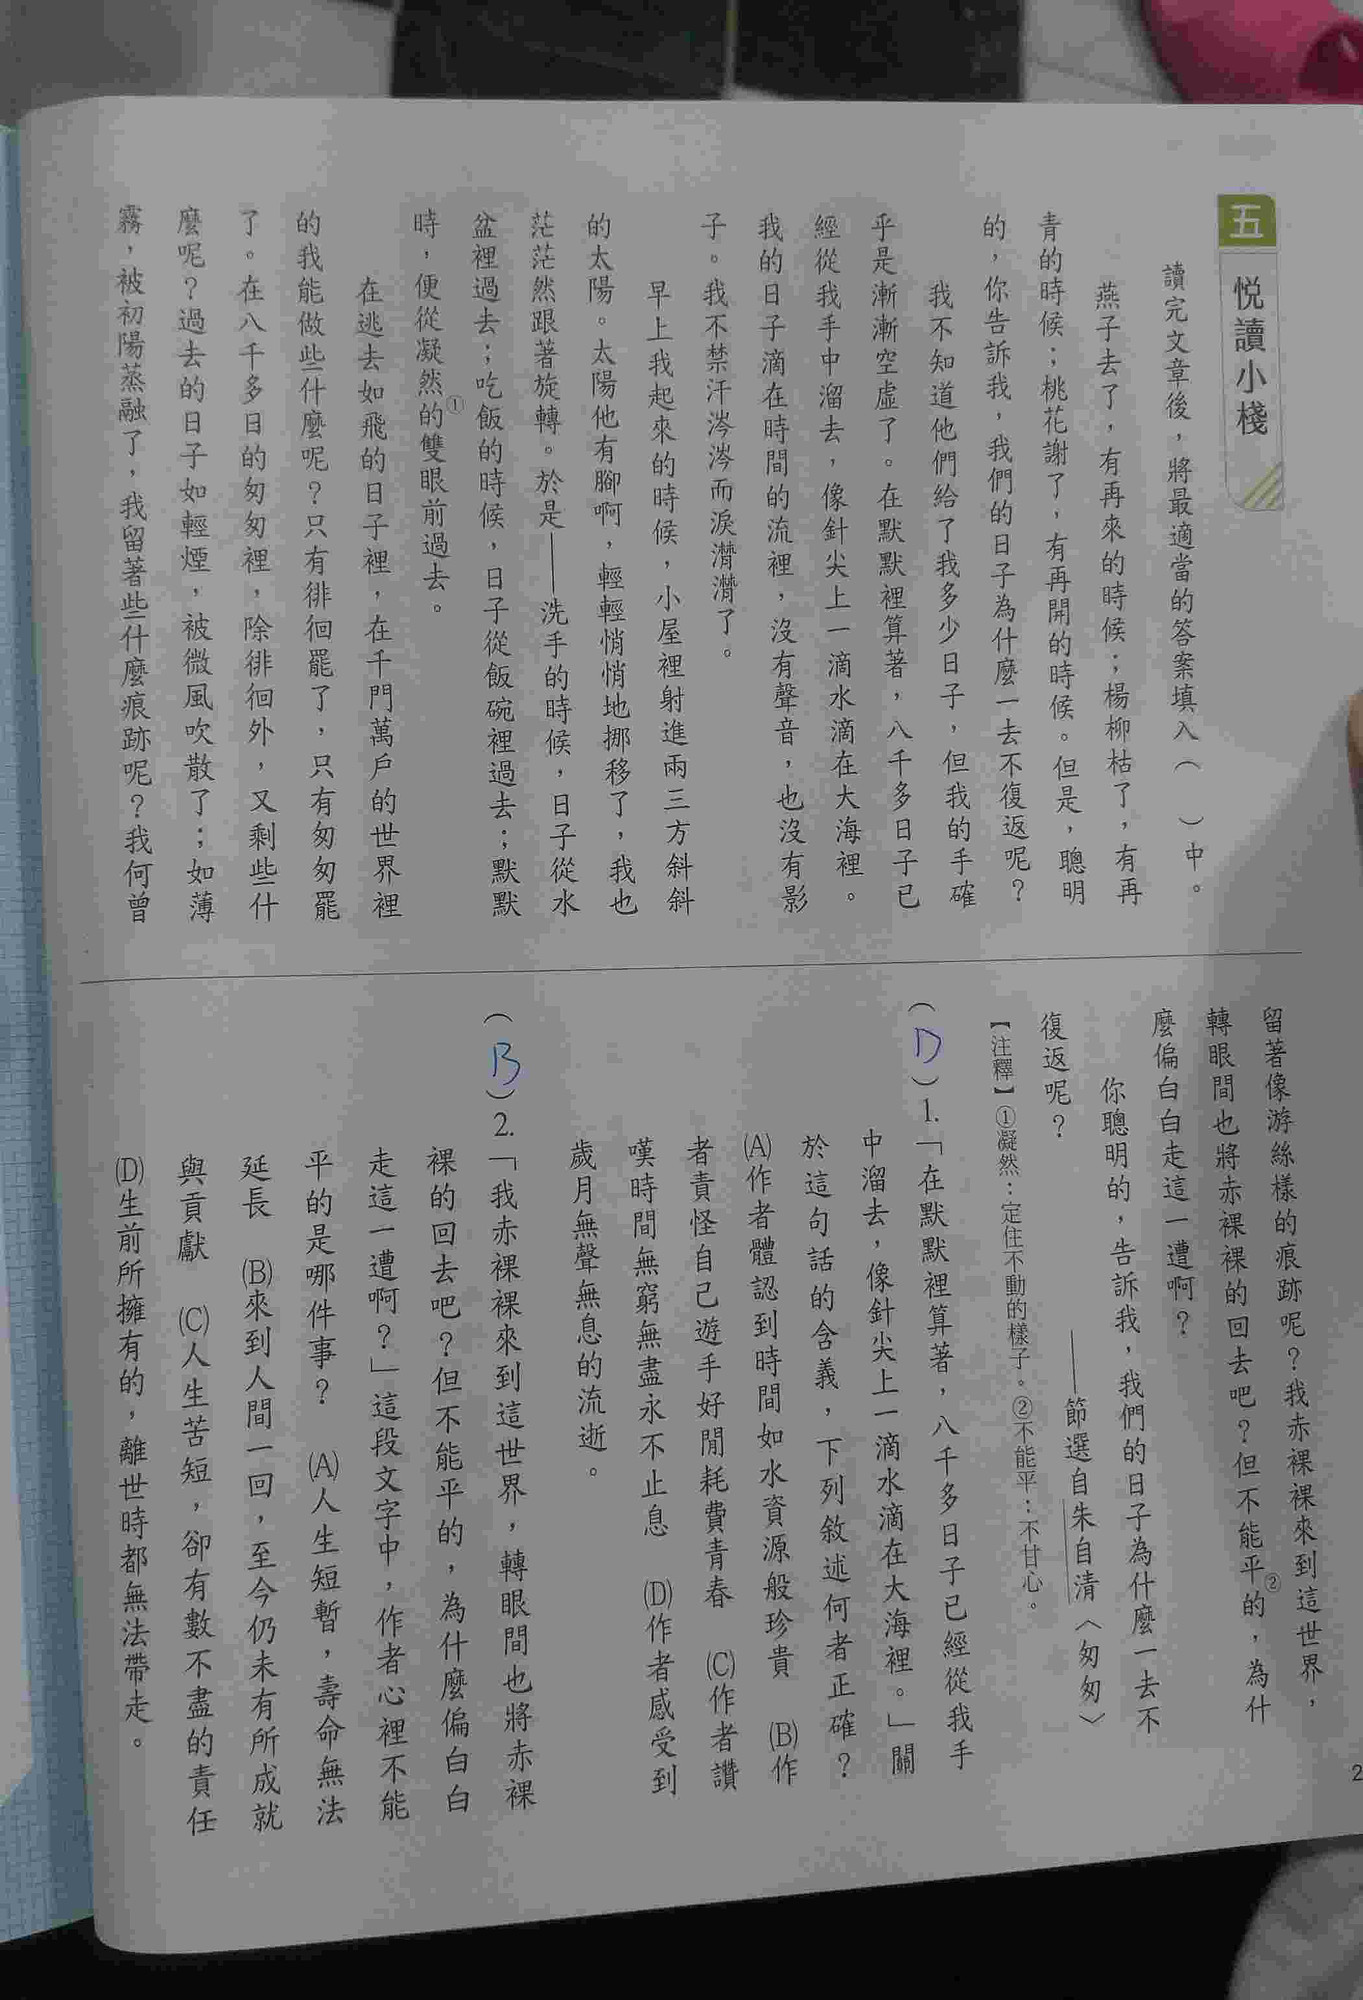 五 悅讀小棧
讀完文章後，將最適當的答案填入（　）中。
燕子去了，有再來的時候；楊柳枯了，有再
青的時候；桃花謝了，有再開的時候。但是，聰明
的，你告訴我，我們的日子為什麼一去不復返呢？
我不知道他們給了我多少日子，但我的手確
乎是漸漸空虛了。在默默裡算著，八千多日子已
經從我手中溜去，像針尖上一滴水滴在大海裡。
我的日子滴在時間的流裡，沒有聲音，也沒有影
子。我不禁汗涔涔而淚潸潸了。
早上我起來的時候，小屋裡射進兩三方斜斜
的太陽。太陽他有腳啊，輕輕悄悄地挪移了，我也
茫茫然跟著旋轉。於是——洗手的時候，日子從水
盆裡過去；吃飯的時候，日子從飯碗裡過去；默默
時，便從凝然①的雙眼前過去。
在逃去如飛的日子裡，在千門萬戶的世界裡
的我能做些什麼呢？只有徘徊罷了，只有匆匆罷
了。在八千多日的匆匆裡，除徘徊外，又剩些什
麼呢？過去的日子如輕煙，被微風吹散了；如薄
霧，被初陽蒸融了，我留著些什麼痕跡呢？我何曾
留著像游絲樣的痕跡呢？我赤裸裸來到這世界，
轉眼間也將赤裸裸的回去吧？但不能平②的，為什
麼偏白白走這一遭啊？
你聰明的，告訴我，我們的日子為什麼一去不
復返呢？
——節選自朱自清〈匆匆〉
【注釋】①凝然：定住不動的樣子。②不能平：不甘心。
（D）1.「在默默裡算著，八千多日子已經從我手
中溜去，像針尖上一滴水滴在大海裡。」關
於這句話的含義，下列敘述何者正確？
(A)作者體認到時間如水資源般珍貴　(B)作
者責怪自己遊手好閒耗費青春　(C)作者讚
嘆時間無窮無盡永不止息　(D)作者感受到
歲月無聲無息的流逝。
（B）2.「我赤裸裸來到這世界，轉眼間也將赤裸
裸的回去吧？但不能平的，為什麼偏白白
走這一遭啊？」這段文字中，作者心裡不能
平的是哪件事？　(A)人生短暫，壽命無法
延長　(B)來到人間一回，至今仍未有所成就
與貢獻　(C)人生苦短，卻有數不盡的責任
(D)生前所擁有的，離世時都無法帶走。
2